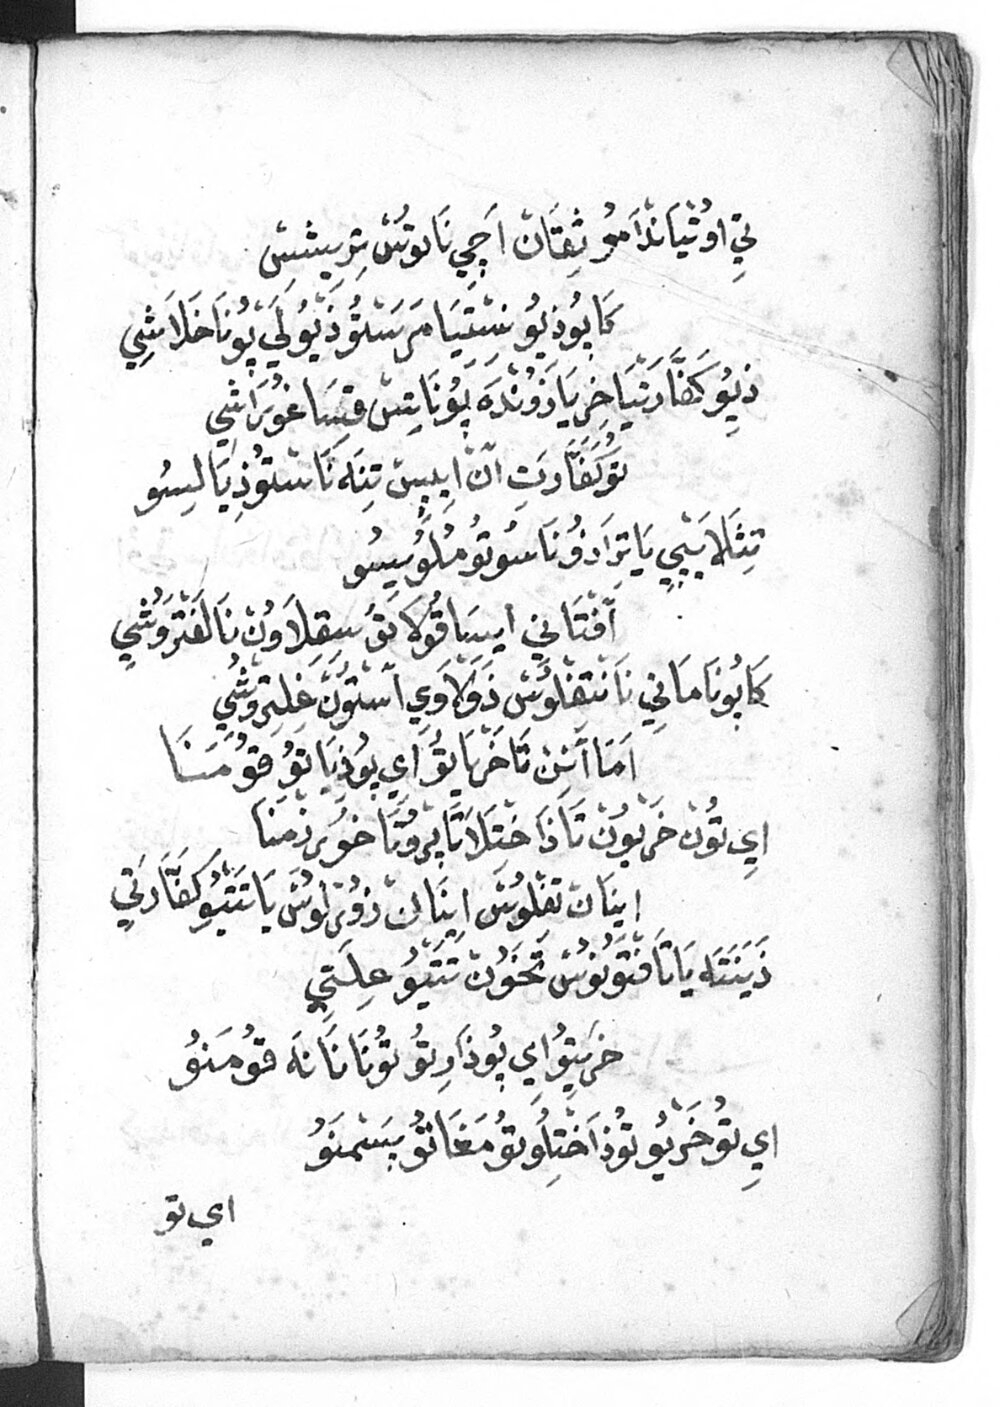 تِي اوُتْيَانْدَامُرْ ثِقَانْ اَچِي نَاتوُسْ تِرِيسْسِسْ
كَاپُوذِيوُ سْتِيَا مَرَسْتوُ ذِيوُ لَيْ پوُنَا خَلَاشِي
ذِيوُ كَفَّارَتْيَا خِرْيَازوُنْدَه پوُنَاتِسْ قِسَا غوُرَاشِي
توُ كَفَّارَتِ اَنْ اِيپِيسْ تِنَه نَاسْتوُذِيَالِسُو
تِثَلَا پِيپِي يَاتِرَاذوُنَاسُوتوُ مُلوُيِيسُو
اَفْتَانِي اِيسَا قوُلَا توُ سِقِلَاوُنْ نَالَفْتَرَوُثِي
كَاپُونَامَانِي نَانْتِفْلوُسْ ذَوَلَاوِي اَسْتوُنْ غِلِتِروُشِي
اَمَا اَنَنْ تَاخَرْيَاتوُ اَيِ پُوذِيَاتوُ قوُمَنَا
اِيِ توُنْ خَرْيوُنْ تَاذَاخْتِلَا تَاپِروُتَا خوُرِزْمَنَا
اِينَانْ تِفْلوُسْ اِينَانْ زوُرْلوُسْ يَاتَتْيوُ كَفَّارَتِي
ذَيَنَتَه يَاتَافْتوُنوُسْ تَخَوُنْ تَتْيوُ عِلَتِي
خَرْتِيوُ اَيِ پُوذَارِتوُ توُنَانَانَه قوُمَنوُ
اِيِ توُ خَرْيوُ توُذَاخْتِلوُتوُ مَغَاتوُ بَسْمَنوُ
اي تو